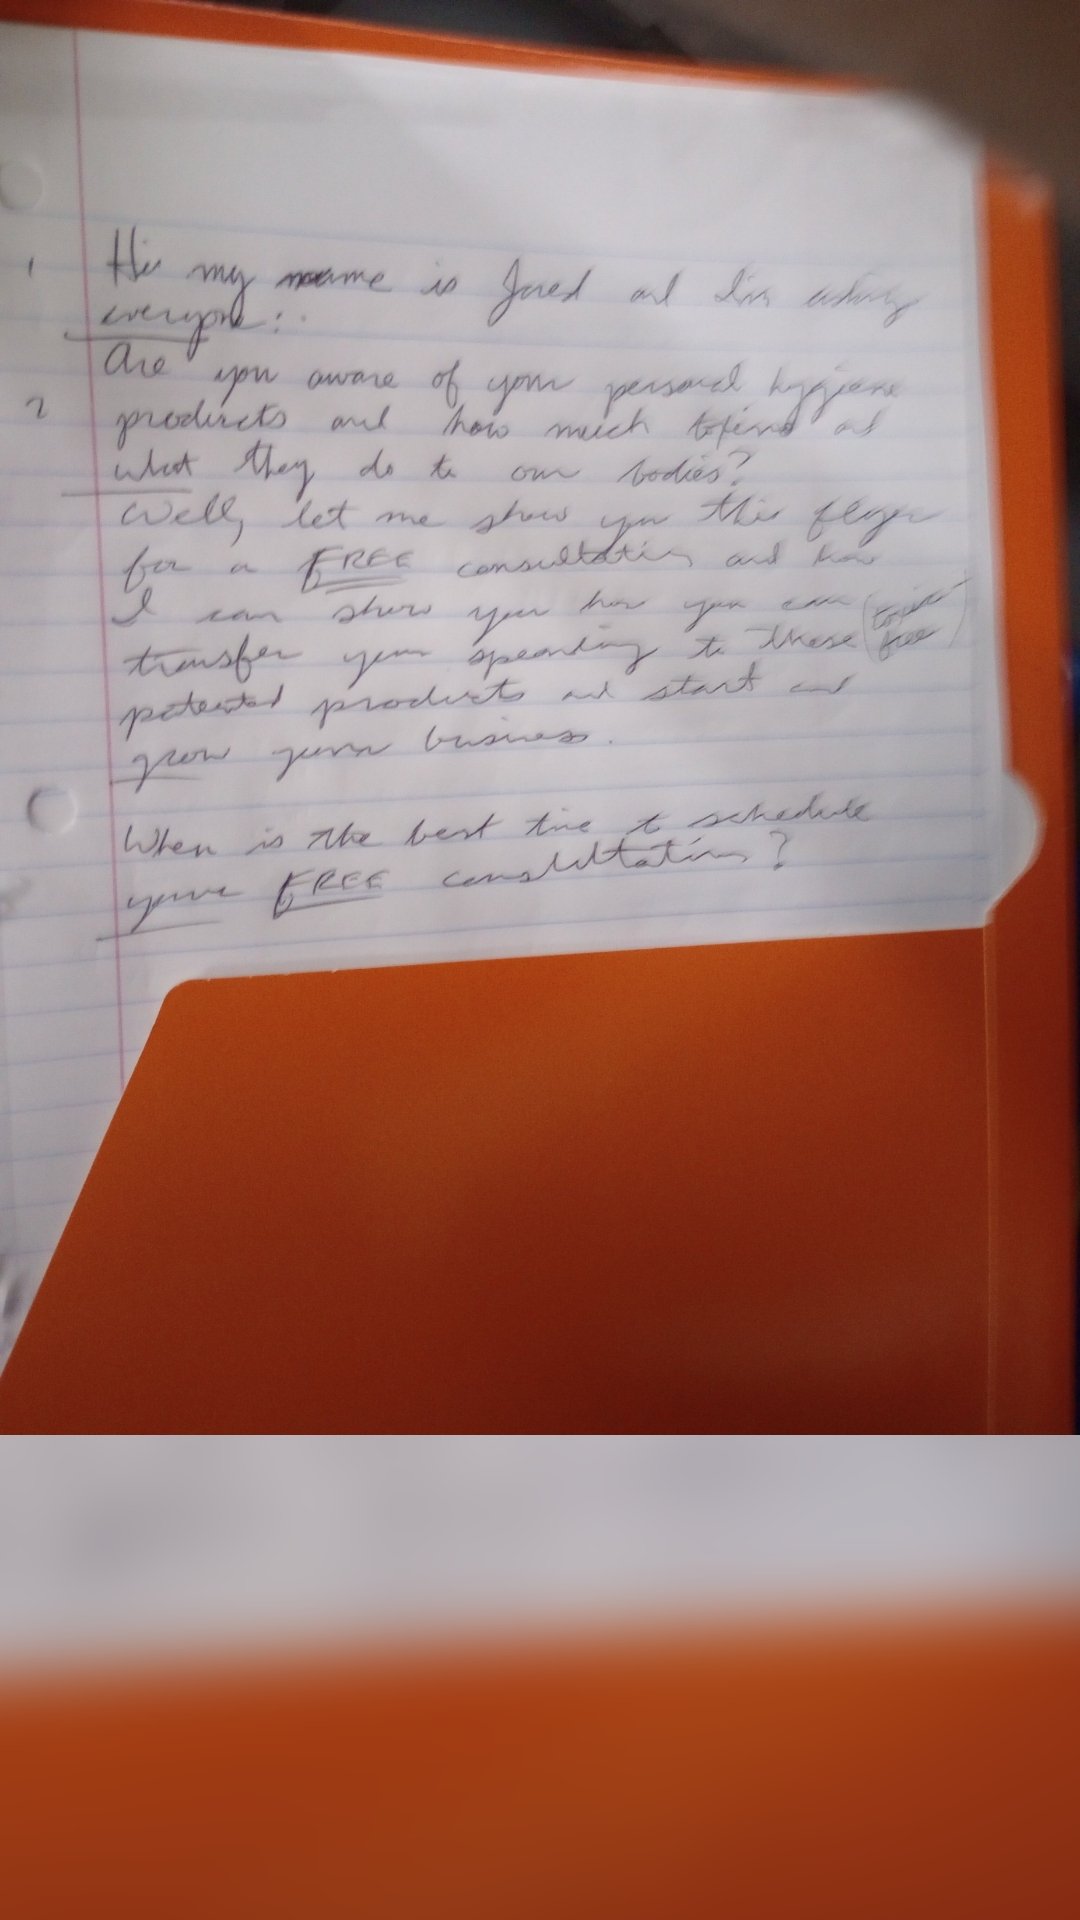 1 Hi my name is Jared and I'm asking
everyone:
Are you aware of your personal hygiene
2 products and how much toxins and
what they do to our bodies?
Well, let me show you this flyer
for a FREE consultation and how
I can show you how you can (toxin
transfer your spending to these free)
patented products and start and
grow your business.
When is the best time to schedule
your FREE consultation?